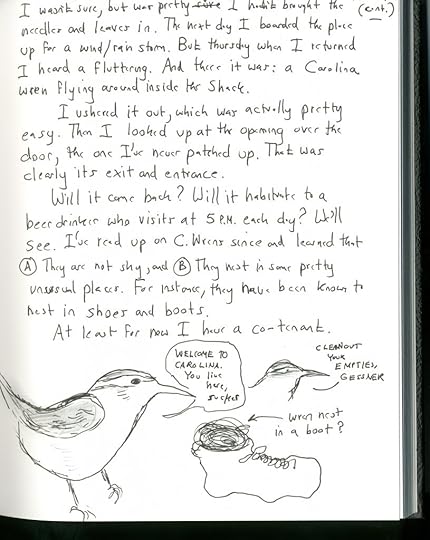 I wasn't sure, but was pretty sure I hadn't brought the (cont.)
needles and leaves in. The next day I boarded the place
up for a wind/rain storm. But thursday when I returned
I heard a fluttering. And there it was: a Carolina
wren flying around inside the Shack.
I ushered it out, which was actually pretty
easy. Then I looked up at the opening over the
door, the one I've never patched up. That was
clearly its exit and entrance.
Will it come back? Will it habituate to a
beer drinker who visits at 5 P.M. each day? We'll
see. I've read up on C. Wrens since and learned that
(A) They are not shy, and (B) They nest in some pretty
unusual places. For instance, they have been known to
nest in shoes and boots.
At least for now I have a co-tenant.
WELCOME TO
CAROLINA.
You live
here,
sucker
CLEANOUT
YOUR
EMPTIES,
GESSNER
wren nest
in a boot?